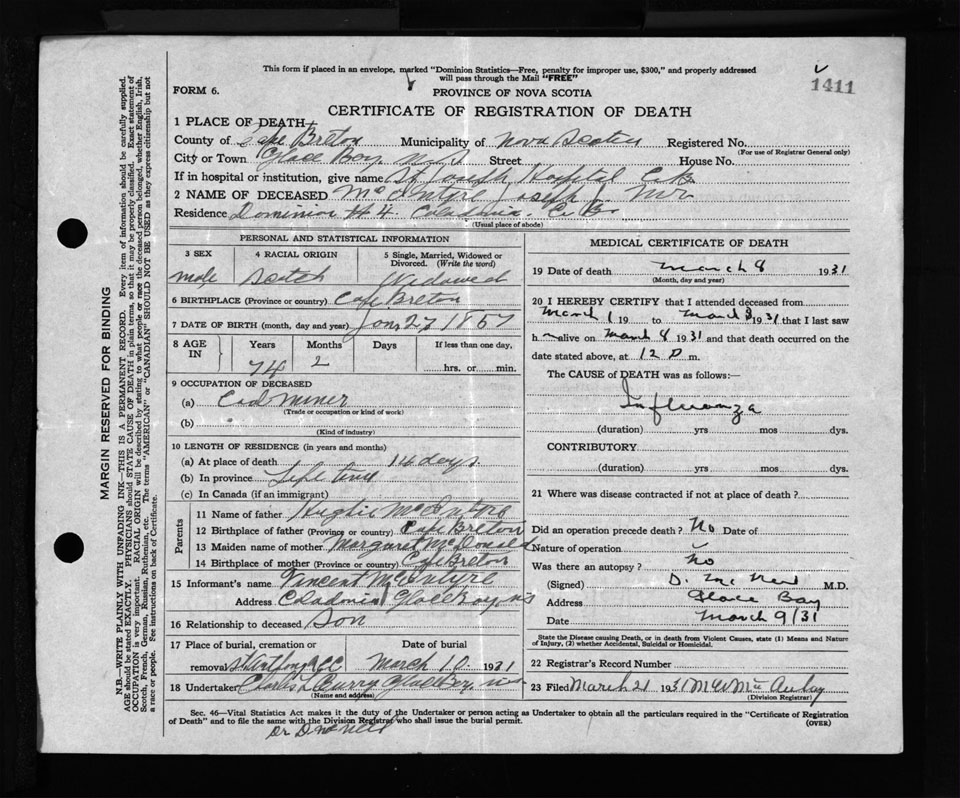 This form if placed in an envelope, marked "Dominion Statistics—Free, penalty for improper use, $300," and properly addressed
will pass through the Mail "FREE"
1411
FORM 6.
PROVINCE OF NOVA SCOTIA
CERTIFICATE OF REGISTRATION OF DEATH
1 PLACE OF DEATH
County of Cape Breton Municipality of Nova Scotia Registered No.
(For use of Registrar General only)
City or Town Glace Bay N.S. Street House No.
If in hospital or institution, give name St Joseph Hospital C.B.
2 NAME OF DECEASED McIntyre Joseph Mr
Residence Dominion #4. Caledonia. C.B.
(Usual place of abode)
PERSONAL AND STATISTICAL INFORMATION
3 SEX 4 RACIAL ORIGIN 5 Single, Married, Widowed or Divorced. (Write the word)
male Scotch Widowed
6 BIRTHPLACE (Province or country) Cape Breton
7 DATE OF BIRTH (month, day and year) Jan 27 1857
8 AGE IN Years Months Days If less than one day,
74 2 hrs. or min.
9 OCCUPATION OF DECEASED
(a) Coal miner
(Trade or occupation or kind of work)
(b)
(Kind of industry)
10 LENGTH OF RESIDENCE (in years and months)
(a) At place of death 14 days.
(b) In province Life time
(c) In Canada (if an immigrant)
Parents
11 Name of father Hughie McIntyre
12 Birthplace of father (Province or country) Cape Breton
13 Maiden name of mother Margaret McDonald
14 Birthplace of mother (Province or country) Cape Breton
15 Informant's name Vincent McIntyre
Address Caladonia Glace Bay, N.S
16 Relationship to deceased Son
17 Place of burial, cremation or removal Date of burial
March 10 1931
18 Undertaker Charles L Curry Glace Bay,
(Name and address)
MEDICAL CERTIFICATE OF DEATH
19 Date of death March 8 1931
(Month, day and year)
20 I HEREBY CERTIFY that I attended deceased from
March 1 19 to March 8 1931 that I last saw
h alive on March 8 1931 and that death occurred on the
date stated above, at 12 p m.
The CAUSE of DEATH was as follows:—
Influenza
(duration) yrs mos dys.
CONTRIBUTORY
(duration) yrs. mos dys.
21 Where was disease contracted if not at place of death?
Did an operation precede death? No Date of
Nature of operation
Was there an autopsy? No
(Signed) D. McNeil M.D.
Address Glace Bay
Date March 9/31
State the Disease causing Death, or in death from Violent Causes, state (1) Means and Nature
of Injury, (2) whether Accidental, Suicidal or Homicidal.
22 Registrar's Record Number
23 Filed March 21 1931 McAulay
(Division Registrar)
Sec. 46—Vital Statistics Act makes it the duty of the Undertaker or person acting as Undertaker to obtain all the particulars required in the "Certificate of Registration
of Death" and to file the same with the Division Registrar who shall issue the burial permit. (OVER)
Dr D McNeil
MARGIN RESERVED FOR BINDING
N.B.—WRITE PLAINLY WITH UNFADING INK—THIS IS A PERMANENT RECORD. Every item of information should be carefully supplied.
AGE should be stated EXACTLY. PHYSICIANS should STATE CAUSE OF DEATH in plain terms, so that it may be properly classified. Exact statement of
OCCUPATION is very important. RACIAL ORIGIN will be described by stating to what people or race the deceased person belonged, whether English, Irish,
Scotch, French, German, Russian, Ruthenian, etc. The terms "AMERICAN" or "CANADIAN" SHOULD NOT BE USED as they express citizenship but not
a race or people. See instructions on back of Certificate.